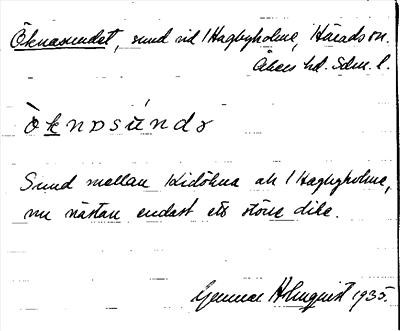 Öknasundet, sund vid Hagbyholme, Härads sn.
Åkers hd. Sdm. l.
Öknɒsúndə
Sund mellan Kidökna ok Hagbyholme,
nu nästan endast ett större dike.
Gunnar Holmquist 1935.